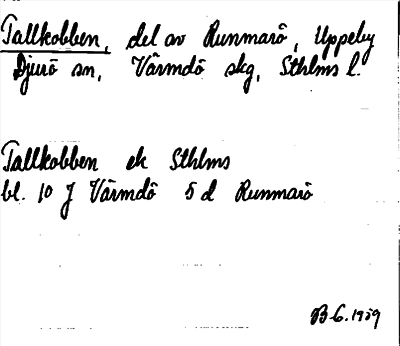 Tallkobben, del av Runmarö, Uppeby
Djurö sn, Värmdö skg, Sthlms l.
Tallkobben ek Sthlms
bl. 10 J Värmdö 5 d Runmarö
1959